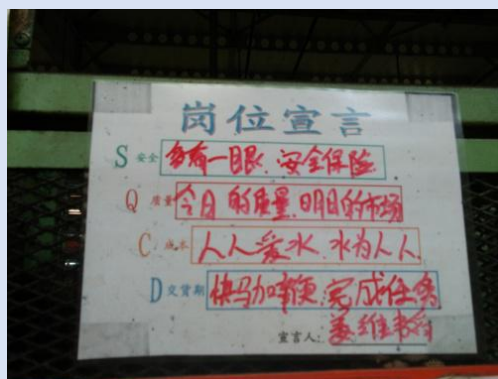 岗位宣言
S 安全 多看一眼 安全保险
Q 质量 今日的质量 明日的市场
C 成本 人人爱水 水为人人
D 交货期 快马加鞭 完成任务
宣言人: